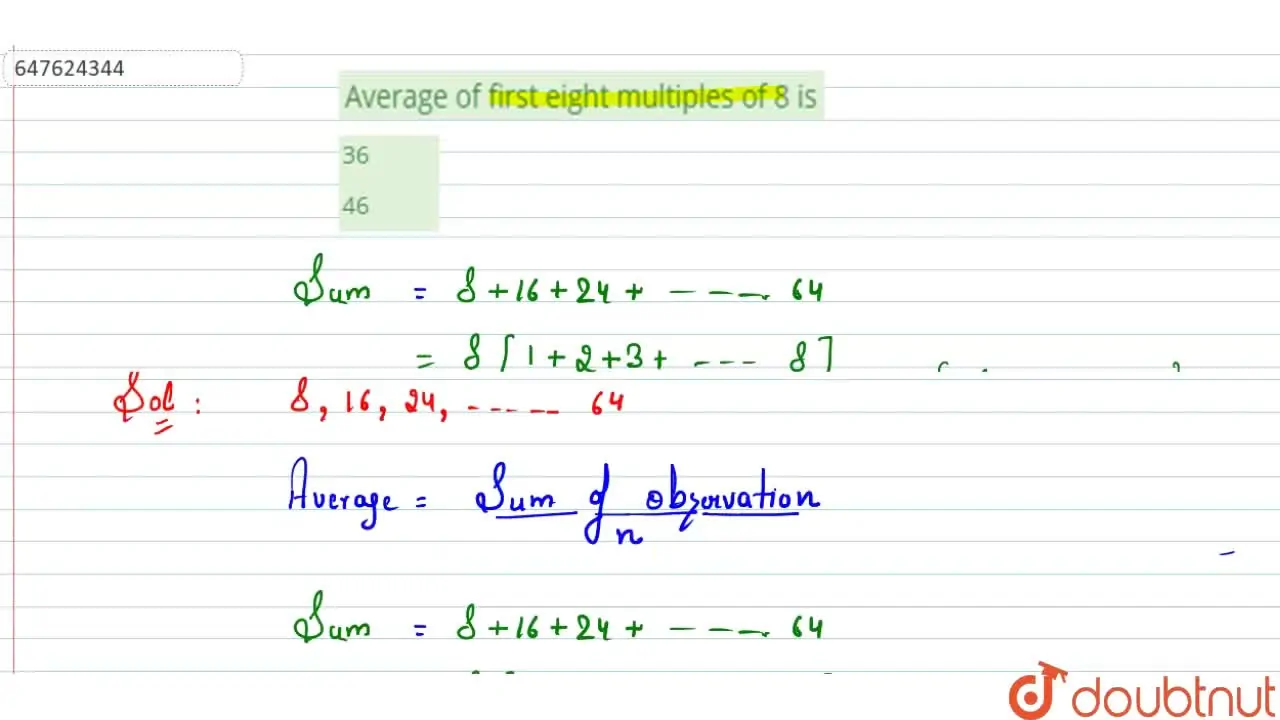 647624344
Average of first eight multiples of 8 is
36
46
Sum = 8 + 16 + 24 + ---. 64
= 8 [ 1 + 2 + 3 + --- 8 ]
Sol : 8, 16, 24, ------ 64
Average = Sum of observation
n
Sum = 8 + 16 + 24 + ---. 64
doubtnut